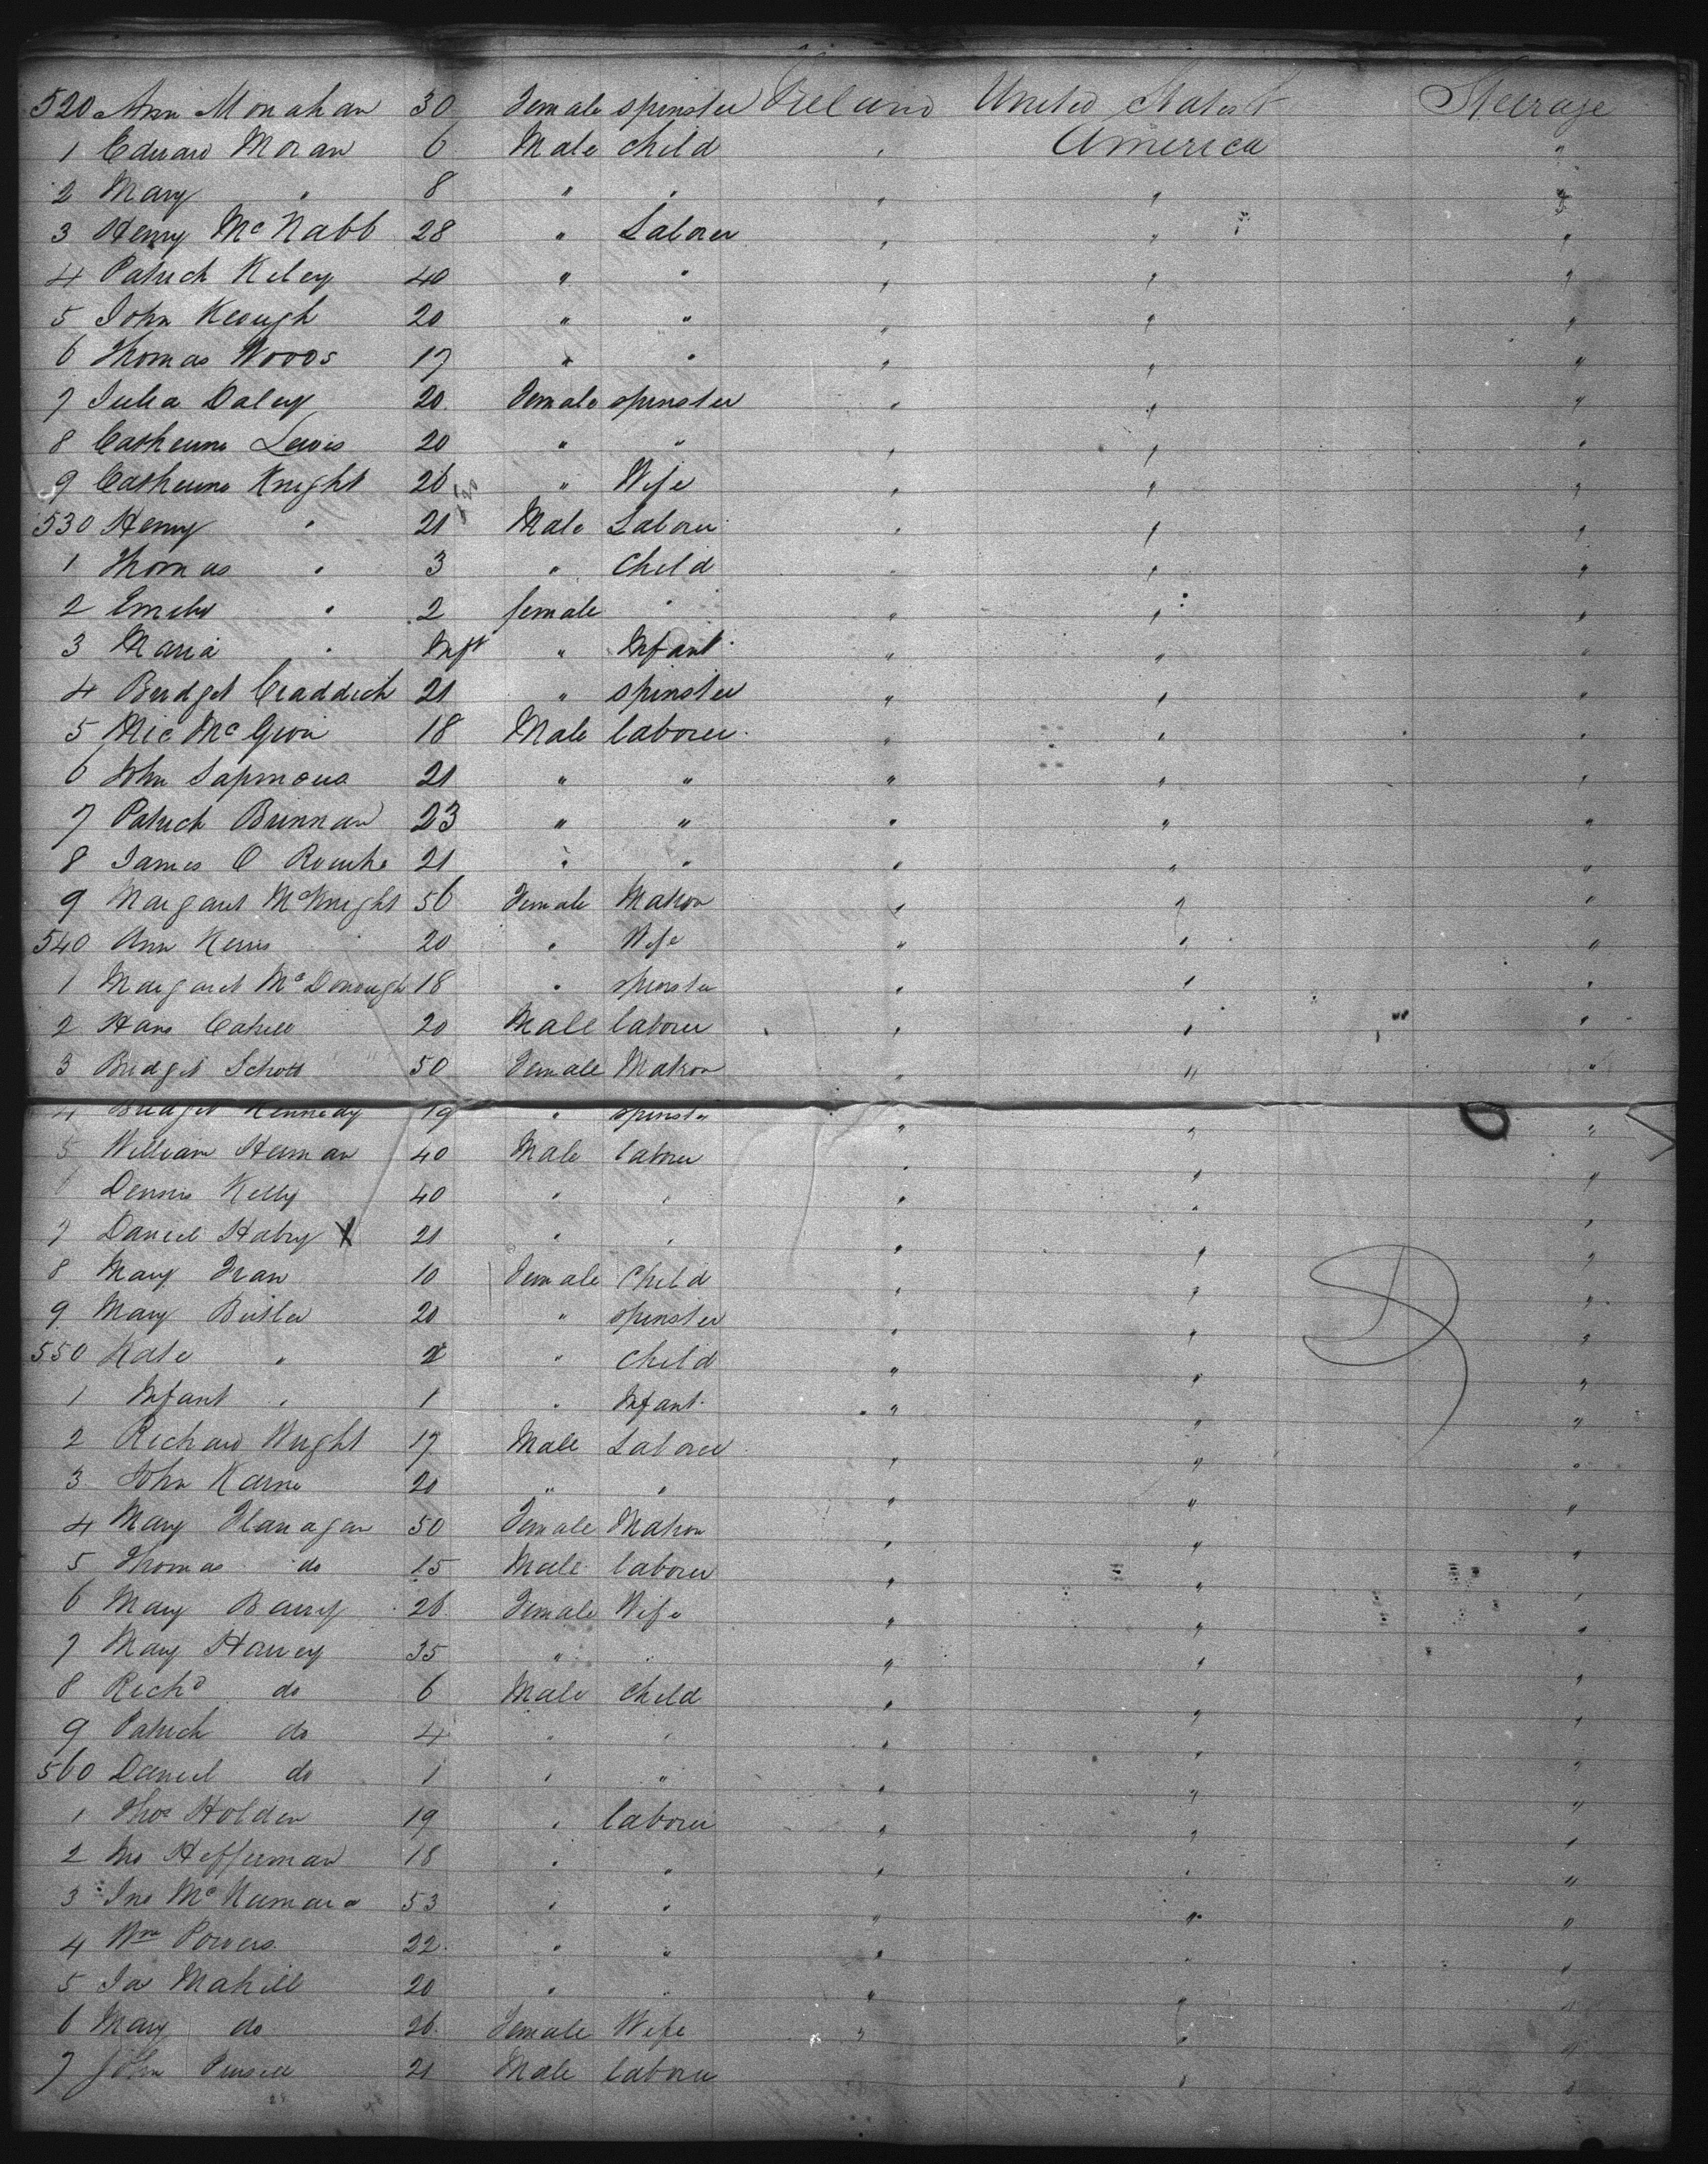 520 Ann Monahan 30 Female spinster Ireland United States of Steerage
1 Edward Moran 6 Male child " America "
2 Mary " 8 " " " " "
3 Henry McNabb 28 " Laborer " " "
4 Patrick Kiley 40 " " " " "
5 John Keough 20 " " " " "
6 Thomas Woods 17 " " " " "
7 Julia Daley 20 Female spinster " " "
8 Catherine Lewis 20 " " " " "
9 Catherine Knight 26 " Wife " " "
530 Henry " 21 Male Laborer " " "
1 Thomas " 3 " Child " " "
2 Emily " 2 female " " " "
3 Maria " Inft " Infant " " "
4 Bridget Craddick 21 " spinster " " "
5 Mic 18 Male laborer " " "
6 John 21 " " " " "
7 Patrick Brinnan 23 " " " " "
8 James O Rourke 21 " " " " "
9 Margaret McKnight 56 Female Matron " " "
540 Ann Kerns 20 " Wife " " "
1 Margaret McDonough 18 " spinster " " "
2 Hans Cahill 20 Male laborer " " "
3 Bridget Schott 50 Female Matron " " "
4 Bridget Kennedy 19 " spinster " " "
5 William Heman 40 Male laborer " " "
6 Dennis Kelly 40 " " " " "
7 Daniel X 21 " " " " "
8 Mary 10 Female Child " " "
9 Mary Butler 20 " spinster " " "
550 Kate " 2 " child " " "
1 Infant " 1 " Infant " " "
2 Richard Wright 17 Male Laborer " " "
3 John Karne 20 " " " " "
4 Mary Flanagan 50 Female Matron " " "
5 Thomas do 15 Male laborer " " "
6 Mary Barry 26 Female Wife " " "
7 Mary Harvey 35 " " " " "
8 Richd do 6 Male child " " "
9 Patrick do 4 " " " " "
560 Daniel do 1 " " " " "
1 Thos Holden 19 " laborer " " "
2 Jno Heffernan 18 " " " " "
3 Jno McNamara 53 " " " " "
4 Wm Powers 22 " " " " "
5 Ja Mahill 20 " " " " "
6 Mary do 26 Female Wife " " "
7 John 21 Male laborer " "